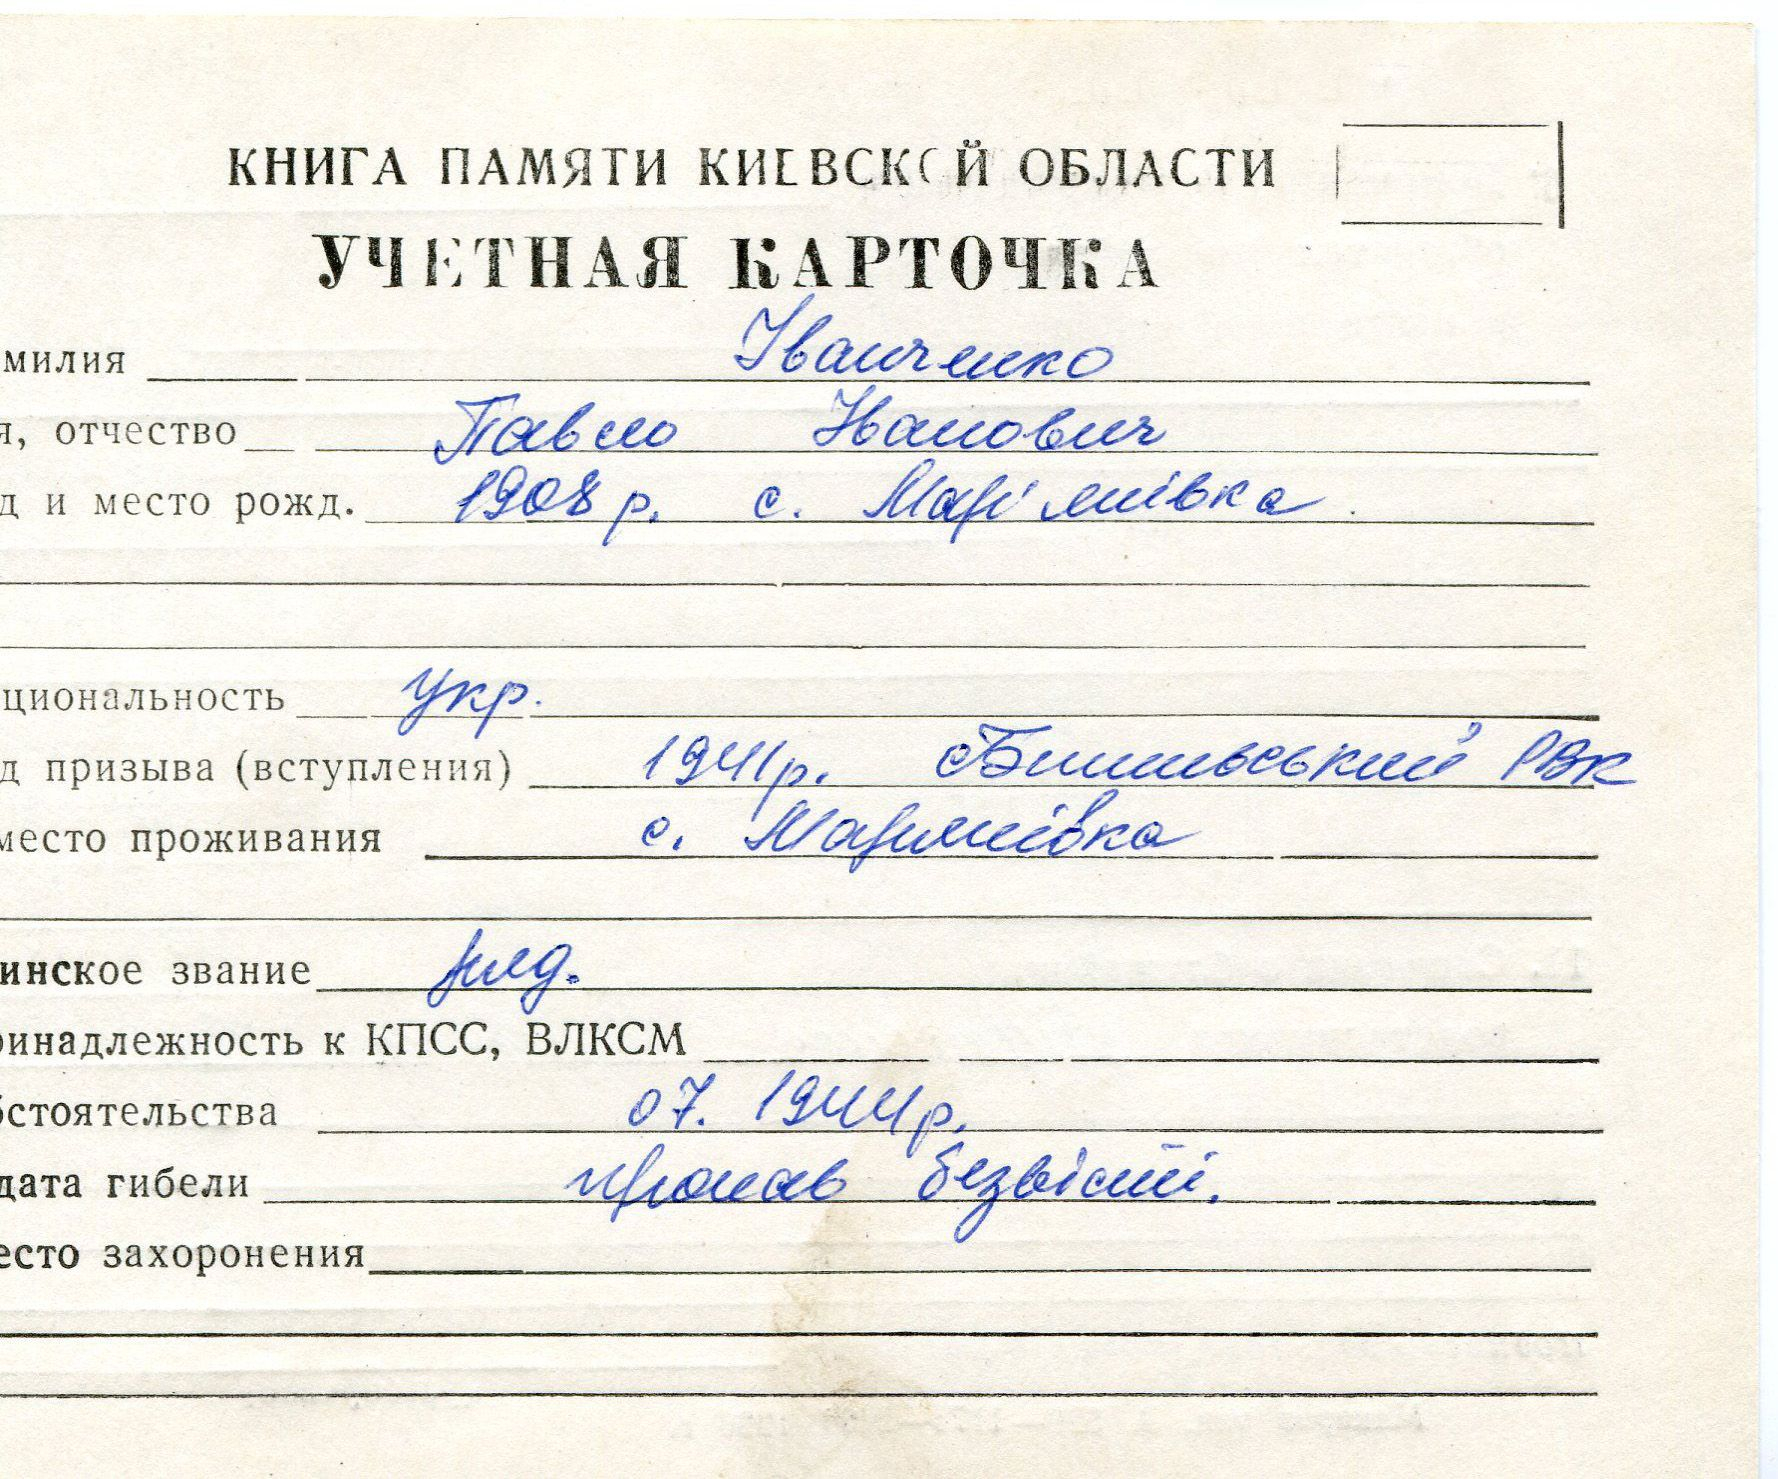 КНИГА ПАМЯТИ КИЕВСКОЙ ОБЛАСТИ
УЧЕТНАЯ КАРТОЧКА
милия Іванченко
я, отчество Павло Іванович
д и место рожд. 1908 р. с.
циональность укр.
д призыва (вступления) 1941р. РВК
место проживания с.
инское звание
ринадлежность к КПСС, ВЛКСМ
бстоятельства 07. 1944р.
дата гибели пропав безвісті.
есто захоронения